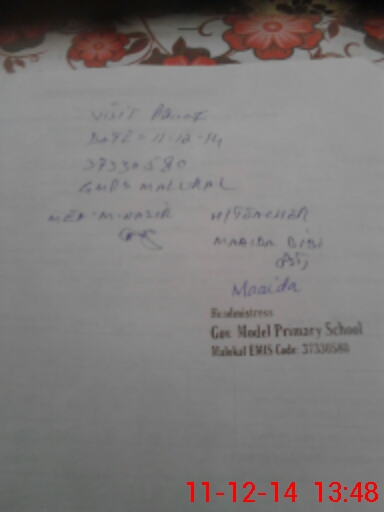 VISIT PROOF
DATE = 11-12-14
37330580
GMPS MALUKAL
MEA-M.NAZIR H/TEACHER
MAAIDA BIBI
PST,
Maaida
Headmistress
Gov. Model Primary School
Malukal EMIS Code: 37330580
11-12-14 13:48